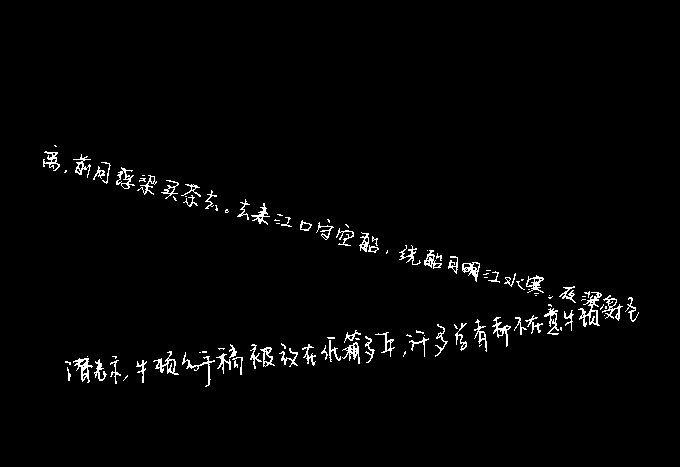 离,前月浮梁买茶去。去来江口守空船,绕船月明江水寒。夜深
牛顿的手稿被放在纸箱多年,许多学者都不在意牛顿